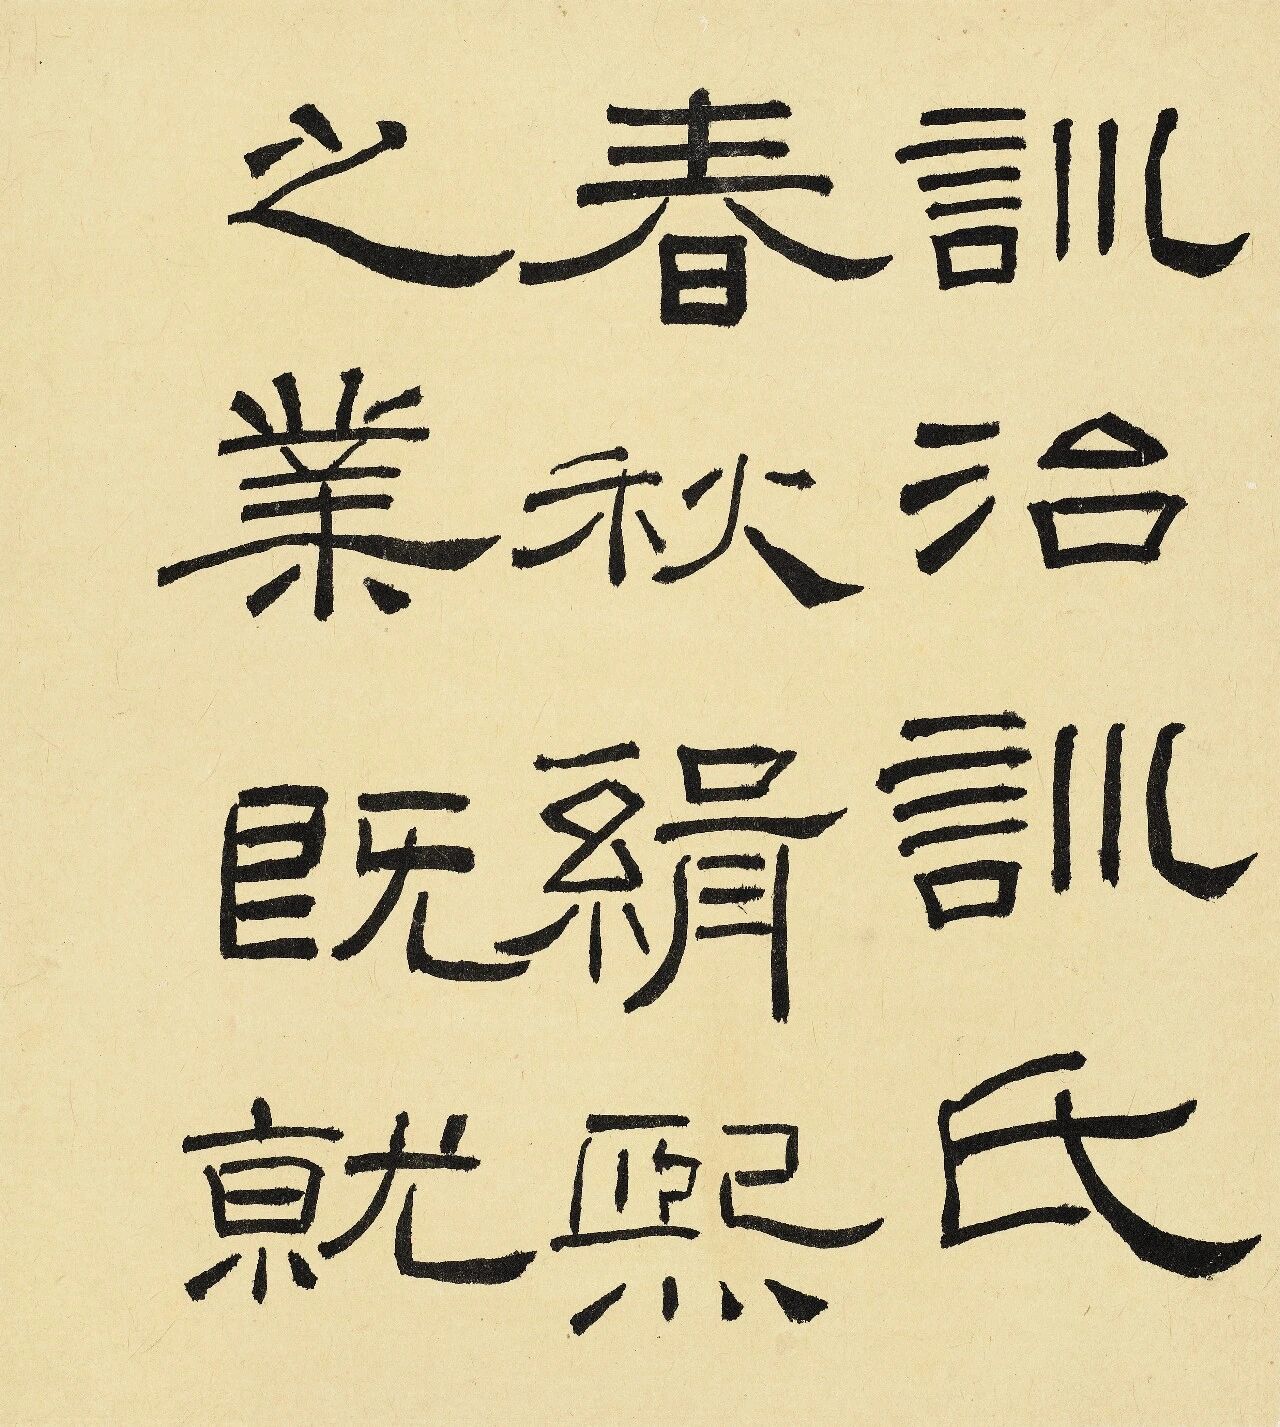 訓治訓氏
春秋緝熙
之業既就